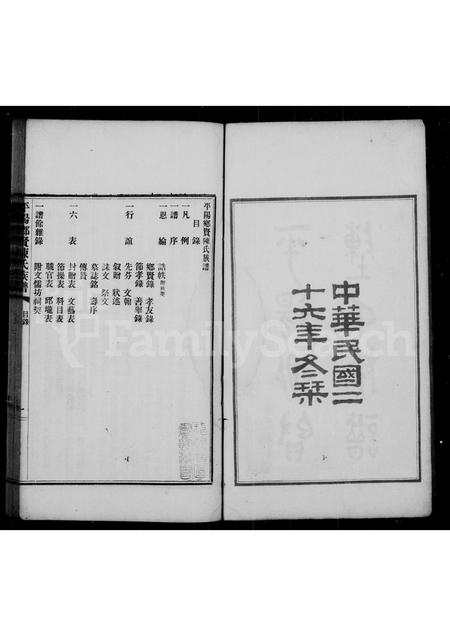 中華民國二
十六年冬栞
平陽鄉賢陳氏族譜
目錄
一凡例
一譜序
一恩綸
誥軼
一行誼
鄉賢錄 孝友錄
節孝錄 善舉錄
先芬 文翰
叙贈 狀述
誄文 祭文
墓誌銘 壽序
傳贊
一六表
封贈表 文藝表
節操表 科目表
職官表 邱壠表
一譜餘雜錄
附文儒坊祠契
平陽鄉賢陳氏族譜 目錄 一
FamilySearch